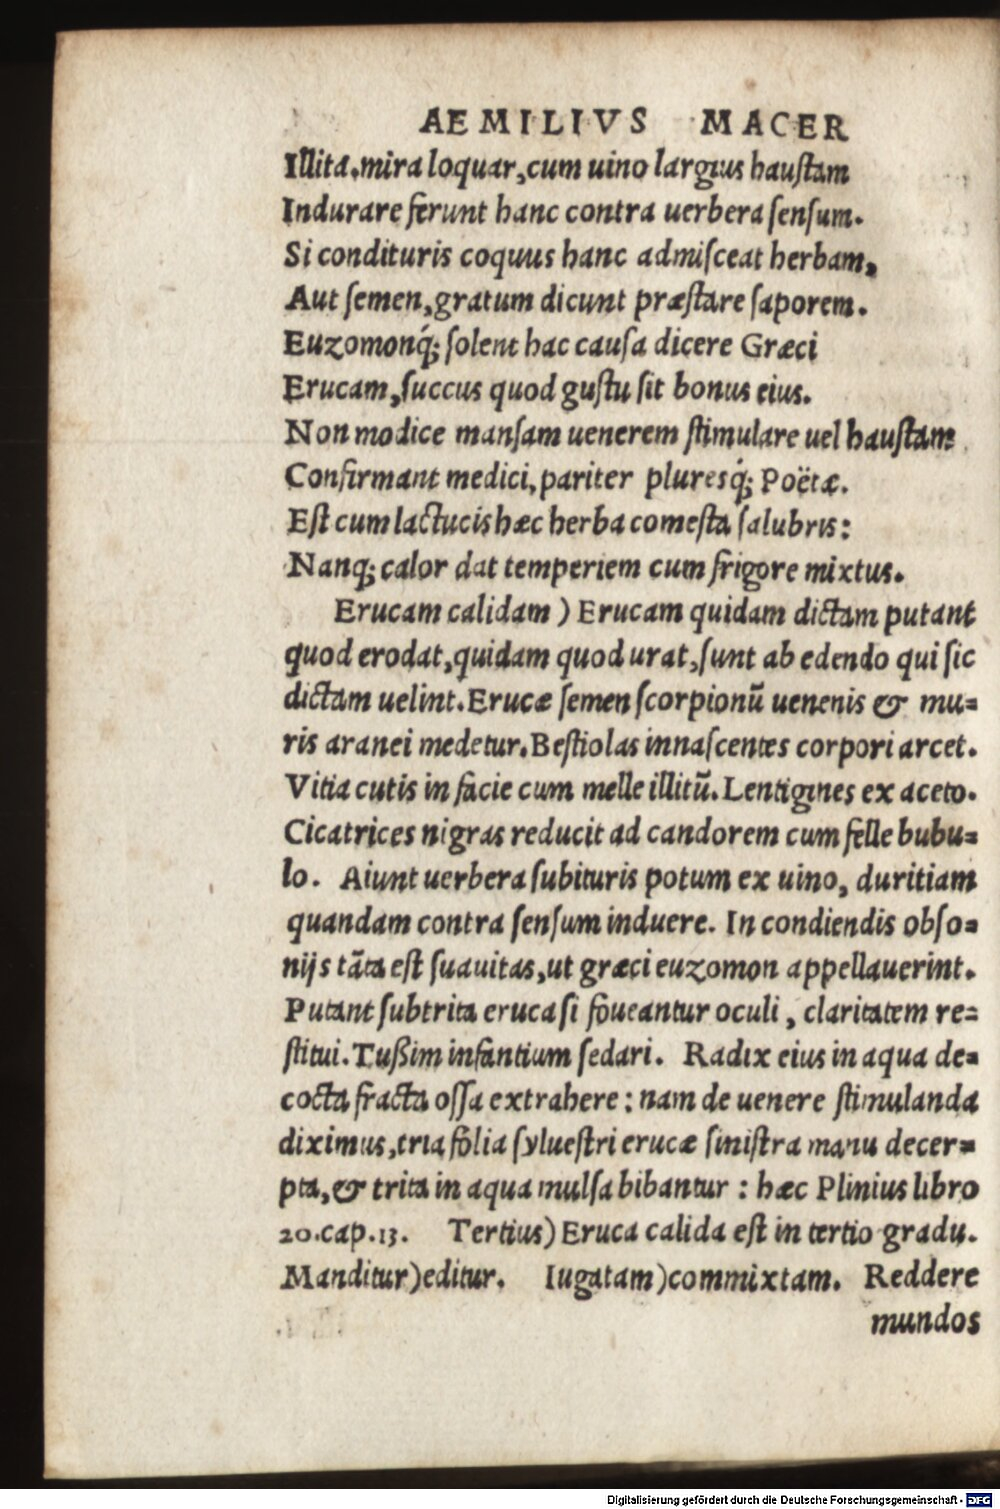 AEMILIVS MACER
Illita. mira loquar, cum uino largius haustam
Indurare ferunt hanc contra uerbera sensum.
Si condituris coquus hanc admisceat herbam,
Aut semen, gratum dicunt præstare saporem.
Euzomonq́; solent hac causa dicere Græci
Erucam, succus quod gustu sit bonus eius.
Non modice mansam uenerem stimulare uel haustam
Confirmant medici, pariter pluresq́; Poëtæ.
Est cum lactucis hæc herba comesta salubris:
Nanq; calor dat temperiem cum frigore mixtus.
Erucam calidam) Erucam quidam dictam putant
quod erodat, quidam quod urat, sunt ab edendo qui sic
dictam uelint. Erucæ semen scorpionũ uenenis & mu=
ris aranei medetur. Bestiolas innascentes corpori arcet.
Vitia cutis in facie cum melle illitũ. Lentigines ex aceto.
Cicatrices nigras reducit ad candorem cum felle bubu=
lo. Aiunt uerbera subituris potum ex uino, duritiam
quandam contra sensum induere. In condiendis obso=
nijs tãta est suauitas, ut græci euzomon appellauerint.
Putant subtrita eruca si foueantur oculi, claritatem re=
stitui. Tußim infantium sedari. Radix eius in aqua de=
cocta fracta ossa extrahere: nam de uenere stimulanda
diximus, tria folia syluestri erucæ sinistra manu decer=
pta, & trita in aqua mulsa bibantur: hæc Plinius libro
20. cap. 13. Tertius) Eruca calida est in tertio gradu.
Manditur) editur. Iugatam) commixtam. Reddere
mundos
Digitalisierung gefördert durch die Deutsche Forschungsgemeinschaft - DFG